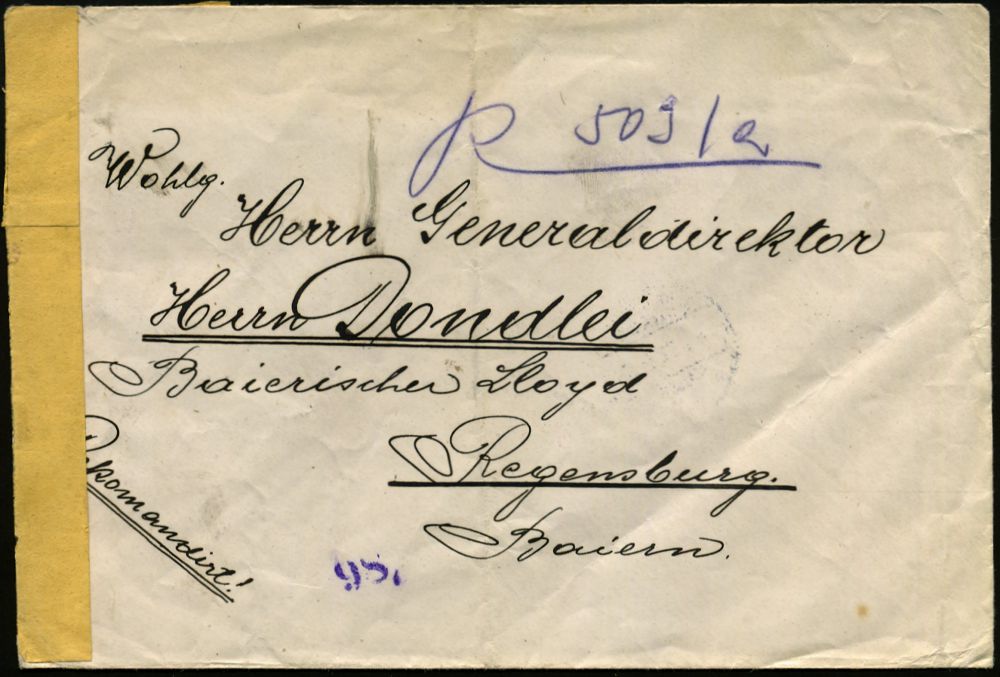 R 503/a
Wohlg.
Herrn Generaldirektor
Herrn Dondlei
Baierischer Lloyd
Regensburg.
Baiern.
Rekomandirt!